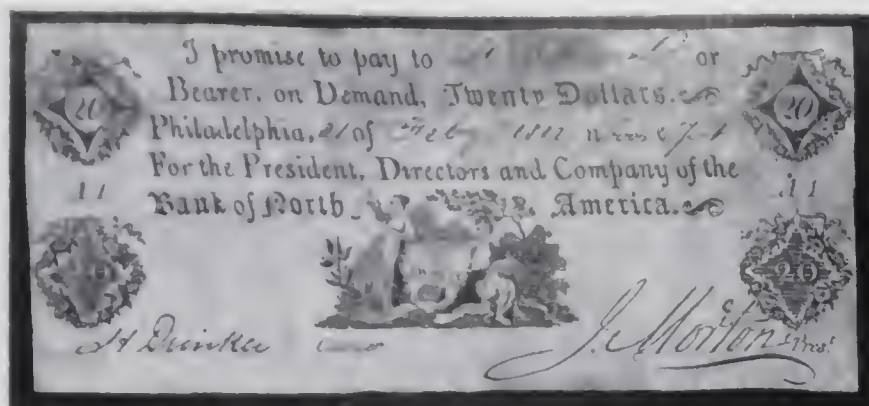 I promise to pay to or
Bearer, on Demand, Twenty Dollars.
Philadelphia, 21 of Feby 1812
For the President, Directors and Company of the
Bank of North America.
20
20
11
11
20
H Drinker
J. Morton Prest.